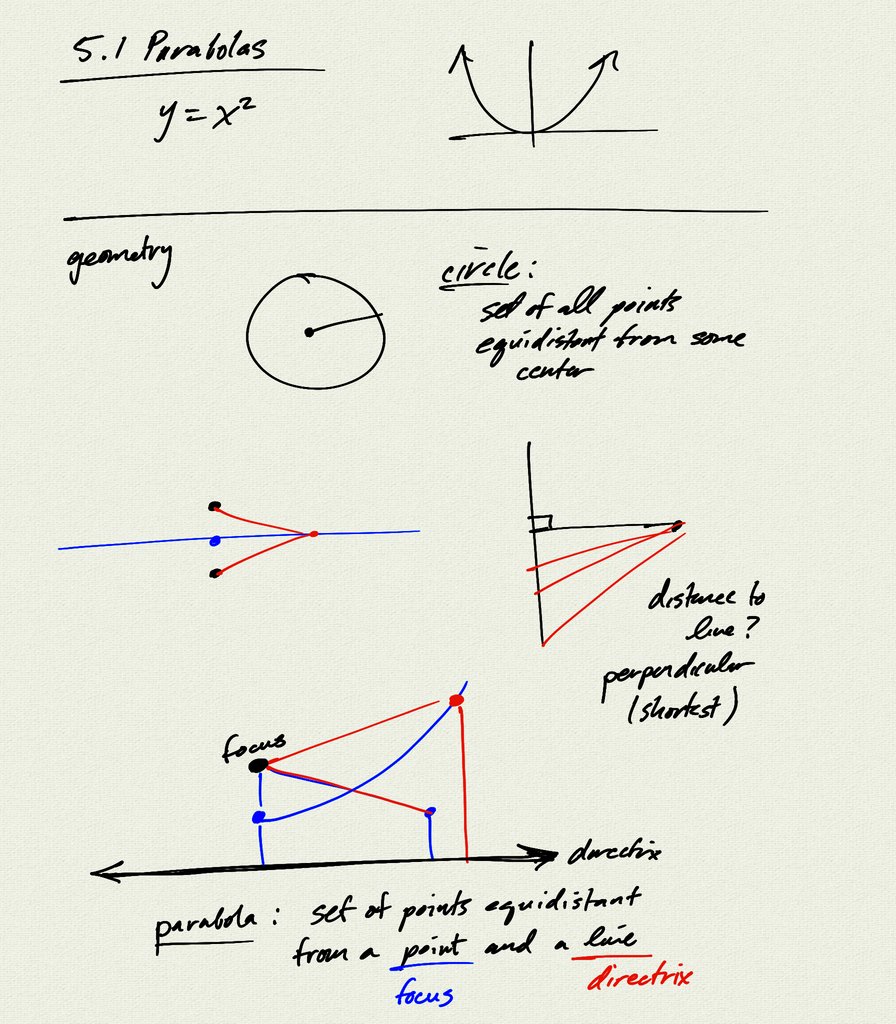 5.1 Parabolas
y = x²
geometry
circle:
set of all points
equidistant from some
center
distance to
line?
perpendicular
(shortest)
focus
directrix
parabola: set of points equidistant
from a point and a line
focus
directrix